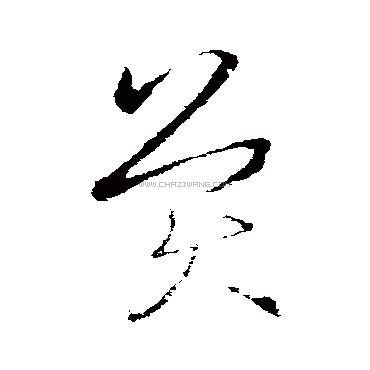 熒
WWW.CHAZIWANG.COM